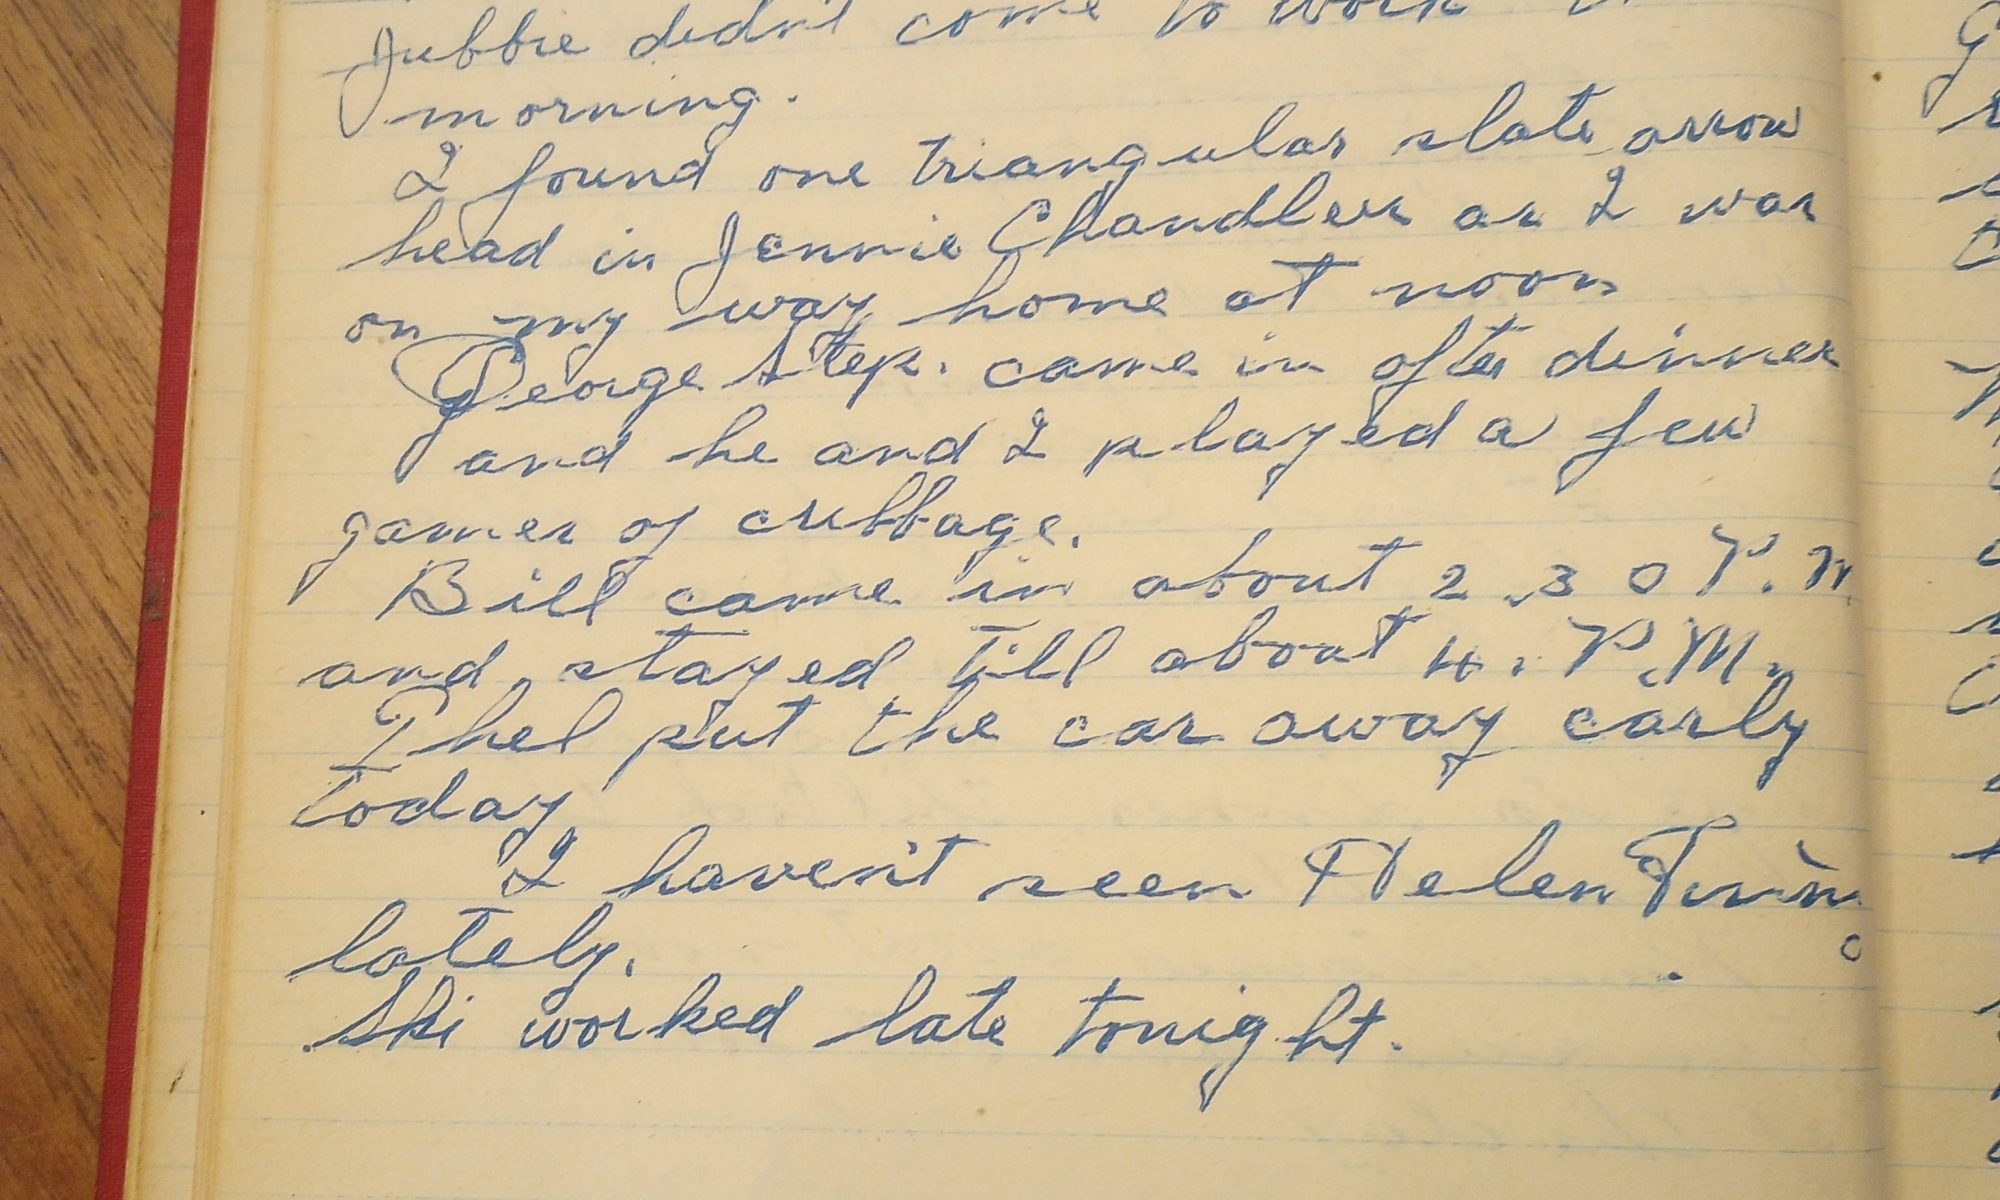 Jubbie didn't come to work
morning.
I found one triangular slate arrow
head in Jennie Chandlers as I was
on my way home at noon
George Step. came in after dinner
and he and I played a few
games of cribbage.
Bill came in about 2.30 P.M.
and stayed till about 4. P.M.
Thel put the car away early
today
I haven't seen Helen
lately.
Ski worked late tonight.